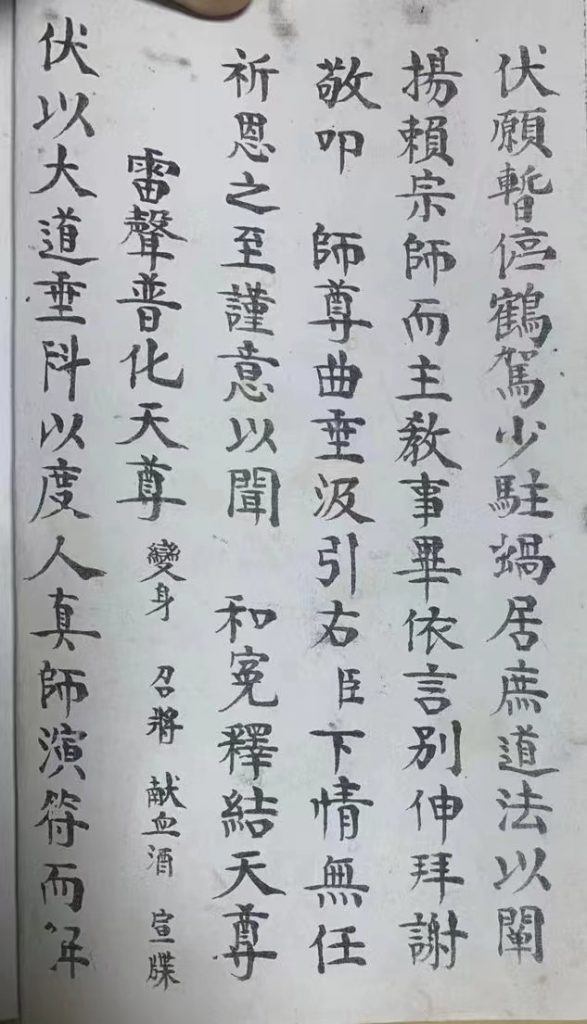 伏願暫停鶴駕少駐蝸居庶道法以闡
揚賴宗師而主教事畢依言別伸拜謝
敬叩　師尊曲垂汲引右臣下情無任
祈恩之至謹意以聞　和冤釋結天尊
雷聲普化天尊 變身 召將 献血酒 宣牒
伏以大道垂科以度人真師演符而